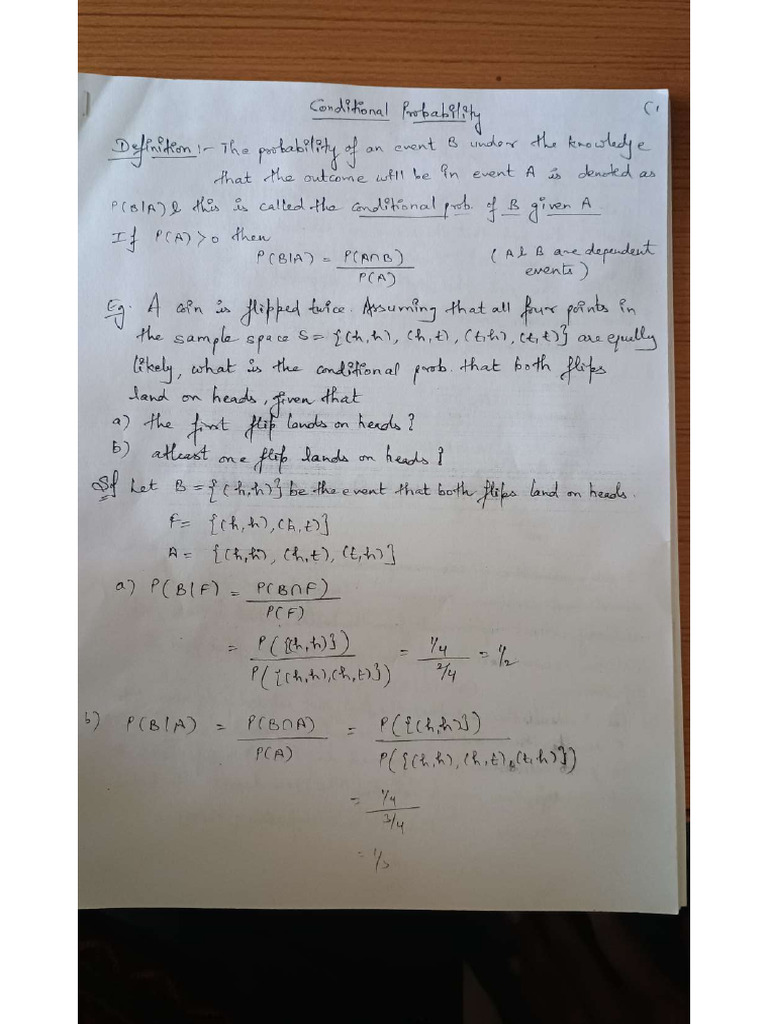 Conditional Probability
Definition :- The probability of an event B under the knowledge
that the outcome will be in event A is denoted as
P(B|A) & this is called the conditional prob. of B given A.
If P(A) > 0 then
P(B|A) = P(A∩B) / P(A) (A & B are dependent events)
Eg. A coin is flipped twice. Assuming that all four points in
the sample space S = {(h,h), (h,t), (t,h), (t,t)} are equally
likely, what is the conditional prob. that both flips
land on heads, given that
a) the first flip lands on heads?
b) atleast one flip lands on heads?
Sol Let B = {(h,h)} be the event that both flips land on heads.
F = {(h,h), (h,t)}
A = {(h,h), (h,t), (t,h)}
a) P(B|F) = P(B∩F) / P(F)
= P({(h,h)}) / P({(h,h),(h,t)}) = 1/4 / 2/4 = 1/2
b) P(B|A) = P(B∩A) / P(A) = P({(h,h)}) / P({(h,h), (h,t), (t,h)})
= 1/4 / 3/4
= 1/3